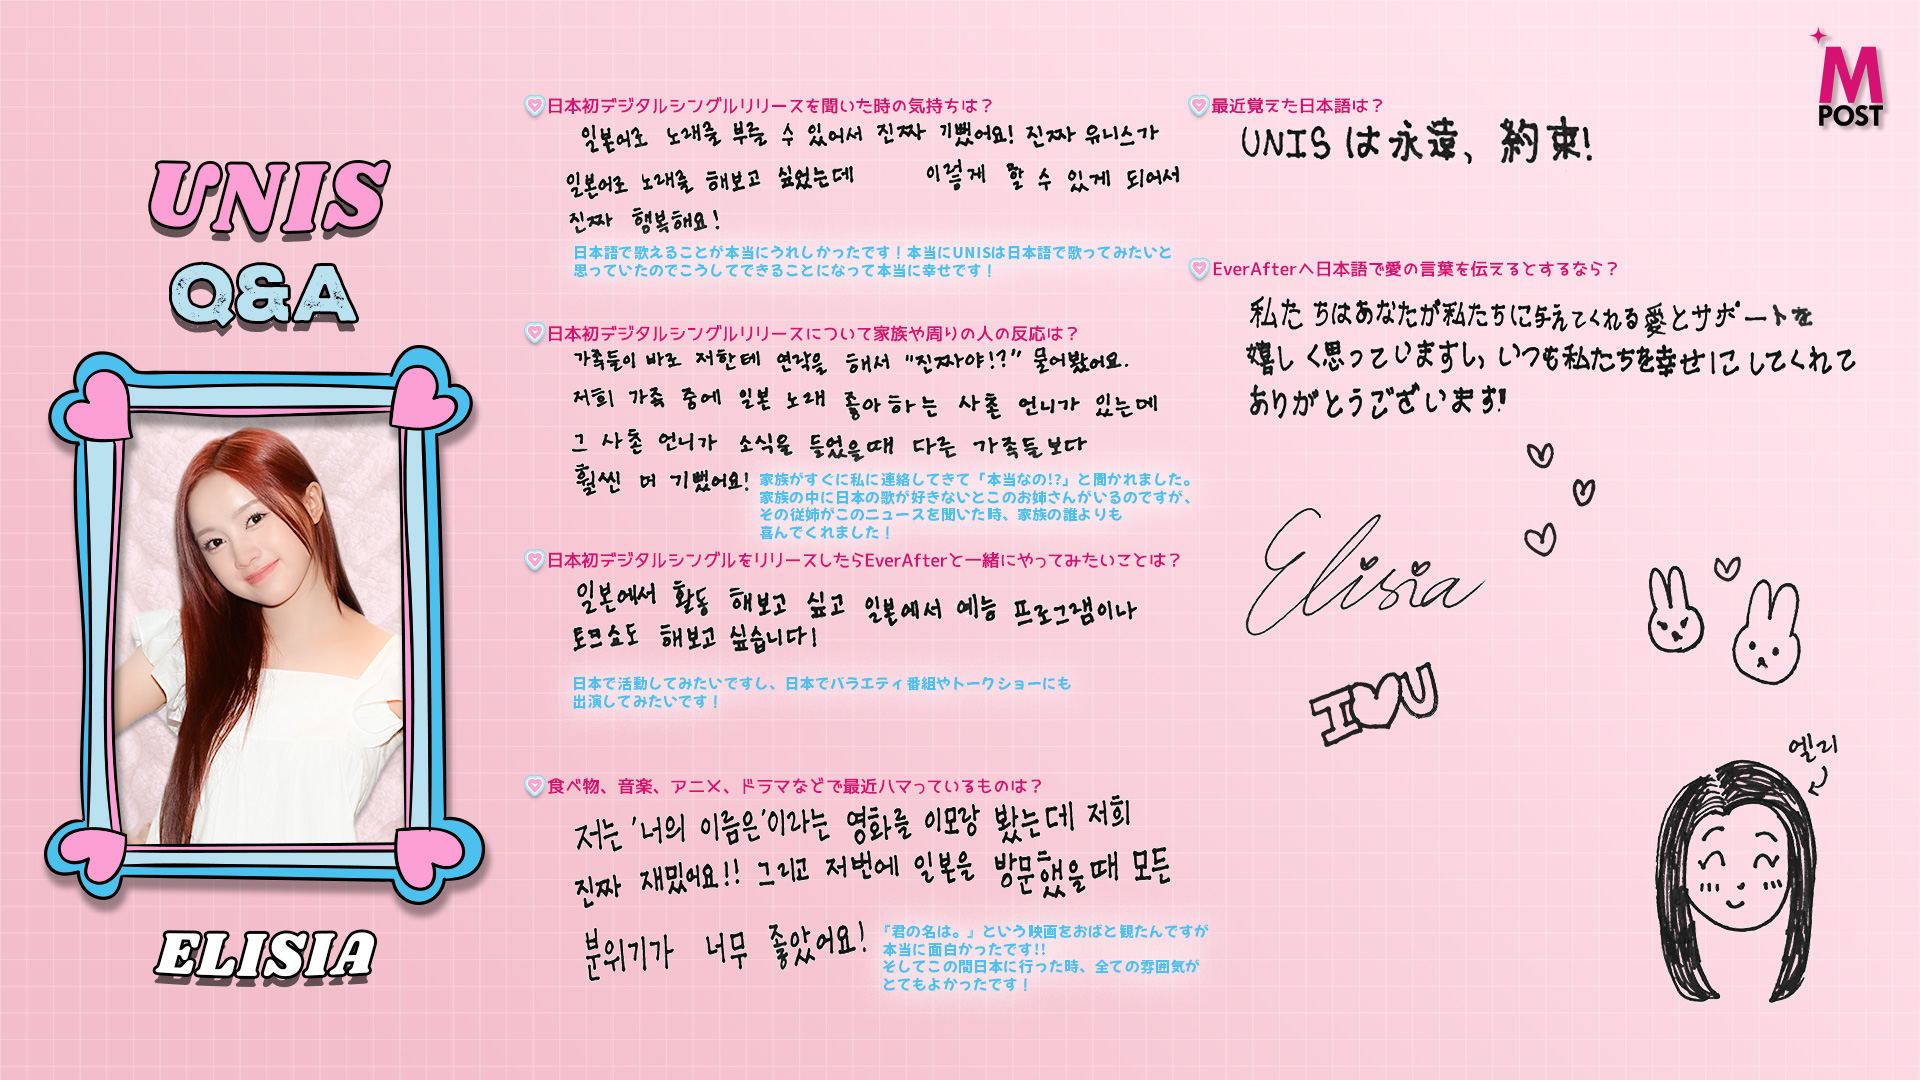 UNIS
Q&A
ELISIA
日本初デジタルシングルリリースを聞いた時の気持ちは？
일본어로 노래를 부를 수 있어서 진짜 기뻤어요! 진짜 유니스가
일본어로 노래를 해보고 싶었는데 이렇게 할 수 있게 되어서
진짜 행복해요!
日本語で歌えることが本当にうれしかったです！本当にUNISは日本語で歌ってみたいと
思っていたのでこうしてできることになって本当に幸せです！
日本初デジタルシングルリリースについて家族や周りの人の反応は？
가족들이 바로 저한테 연락을 해서 "진짜야!?" 물어봤어요.
저희 가족 중에 일본 노래 좋아하는 사촌 언니가 있는데
그 사촌 언니가 소식을 들었을때 다른 가족들보다
훨씬 더 기뻤어요!
家族がすぐに私に連絡してきて「本当なの!?」と聞かれました。
家族の中に日本の歌が好きないとこのお姉さんがいるのですが、
その従姉がこのニュースを聞いた時、家族の誰よりも
喜んでくれました！
日本初デジタルシングルをリリースしたらEverAfterと一緒にやってみたいことは？
일본에서 활동 해보고 싶고 일본에서 예능 프로그램이나
토크쇼도 해보고 싶습니다!
日本で活動してみたいですし、日本でバラエティ番組やトークショーにも
出演してみたいです！
食べ物、音楽、アニメ、ドラマなどで最近ハマっているものは？
저는 '너의 이름은'이라는 영화를 이모랑 봤는데 저희
진짜 재밌어요!! 그리고 저번에 일본을 방문했을때 모든
분위기가 너무 좋았어요!
『君の名は。』という映画をおばと観たんですが
本当に面白かったです!!
そしてこの間日本に行った時、全ての雰囲気が
とてもよかったです！
最近覚えた日本語は？
UNISは永遠、約束!
EverAfterへ日本語で愛の言葉を伝えるとするなら？
私たちはあなたが私たちに与えてくれる愛とサポートを
嬉しく思っていますし、いつも私たちを幸せにしてくれて
ありがとうございます!!
Elisia
I♡U
엘리
M
POST